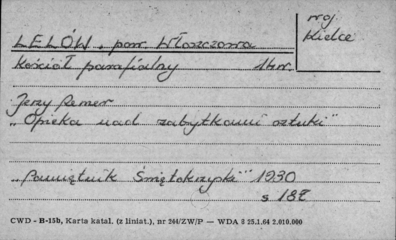 woj.
Kielce
LELÓW, pow. Włoszczowa
Kościół parafialny 1kw.
Jerzy Remer
"Opieka nad zabytkami sztuki"
"Pamiętnik Świętokrzyski" 1930
s 182
CWD - B-15b, Karta katal. (z liniat.), nr 244/ZW/P — WDA 8 25.1.64 2.010.000